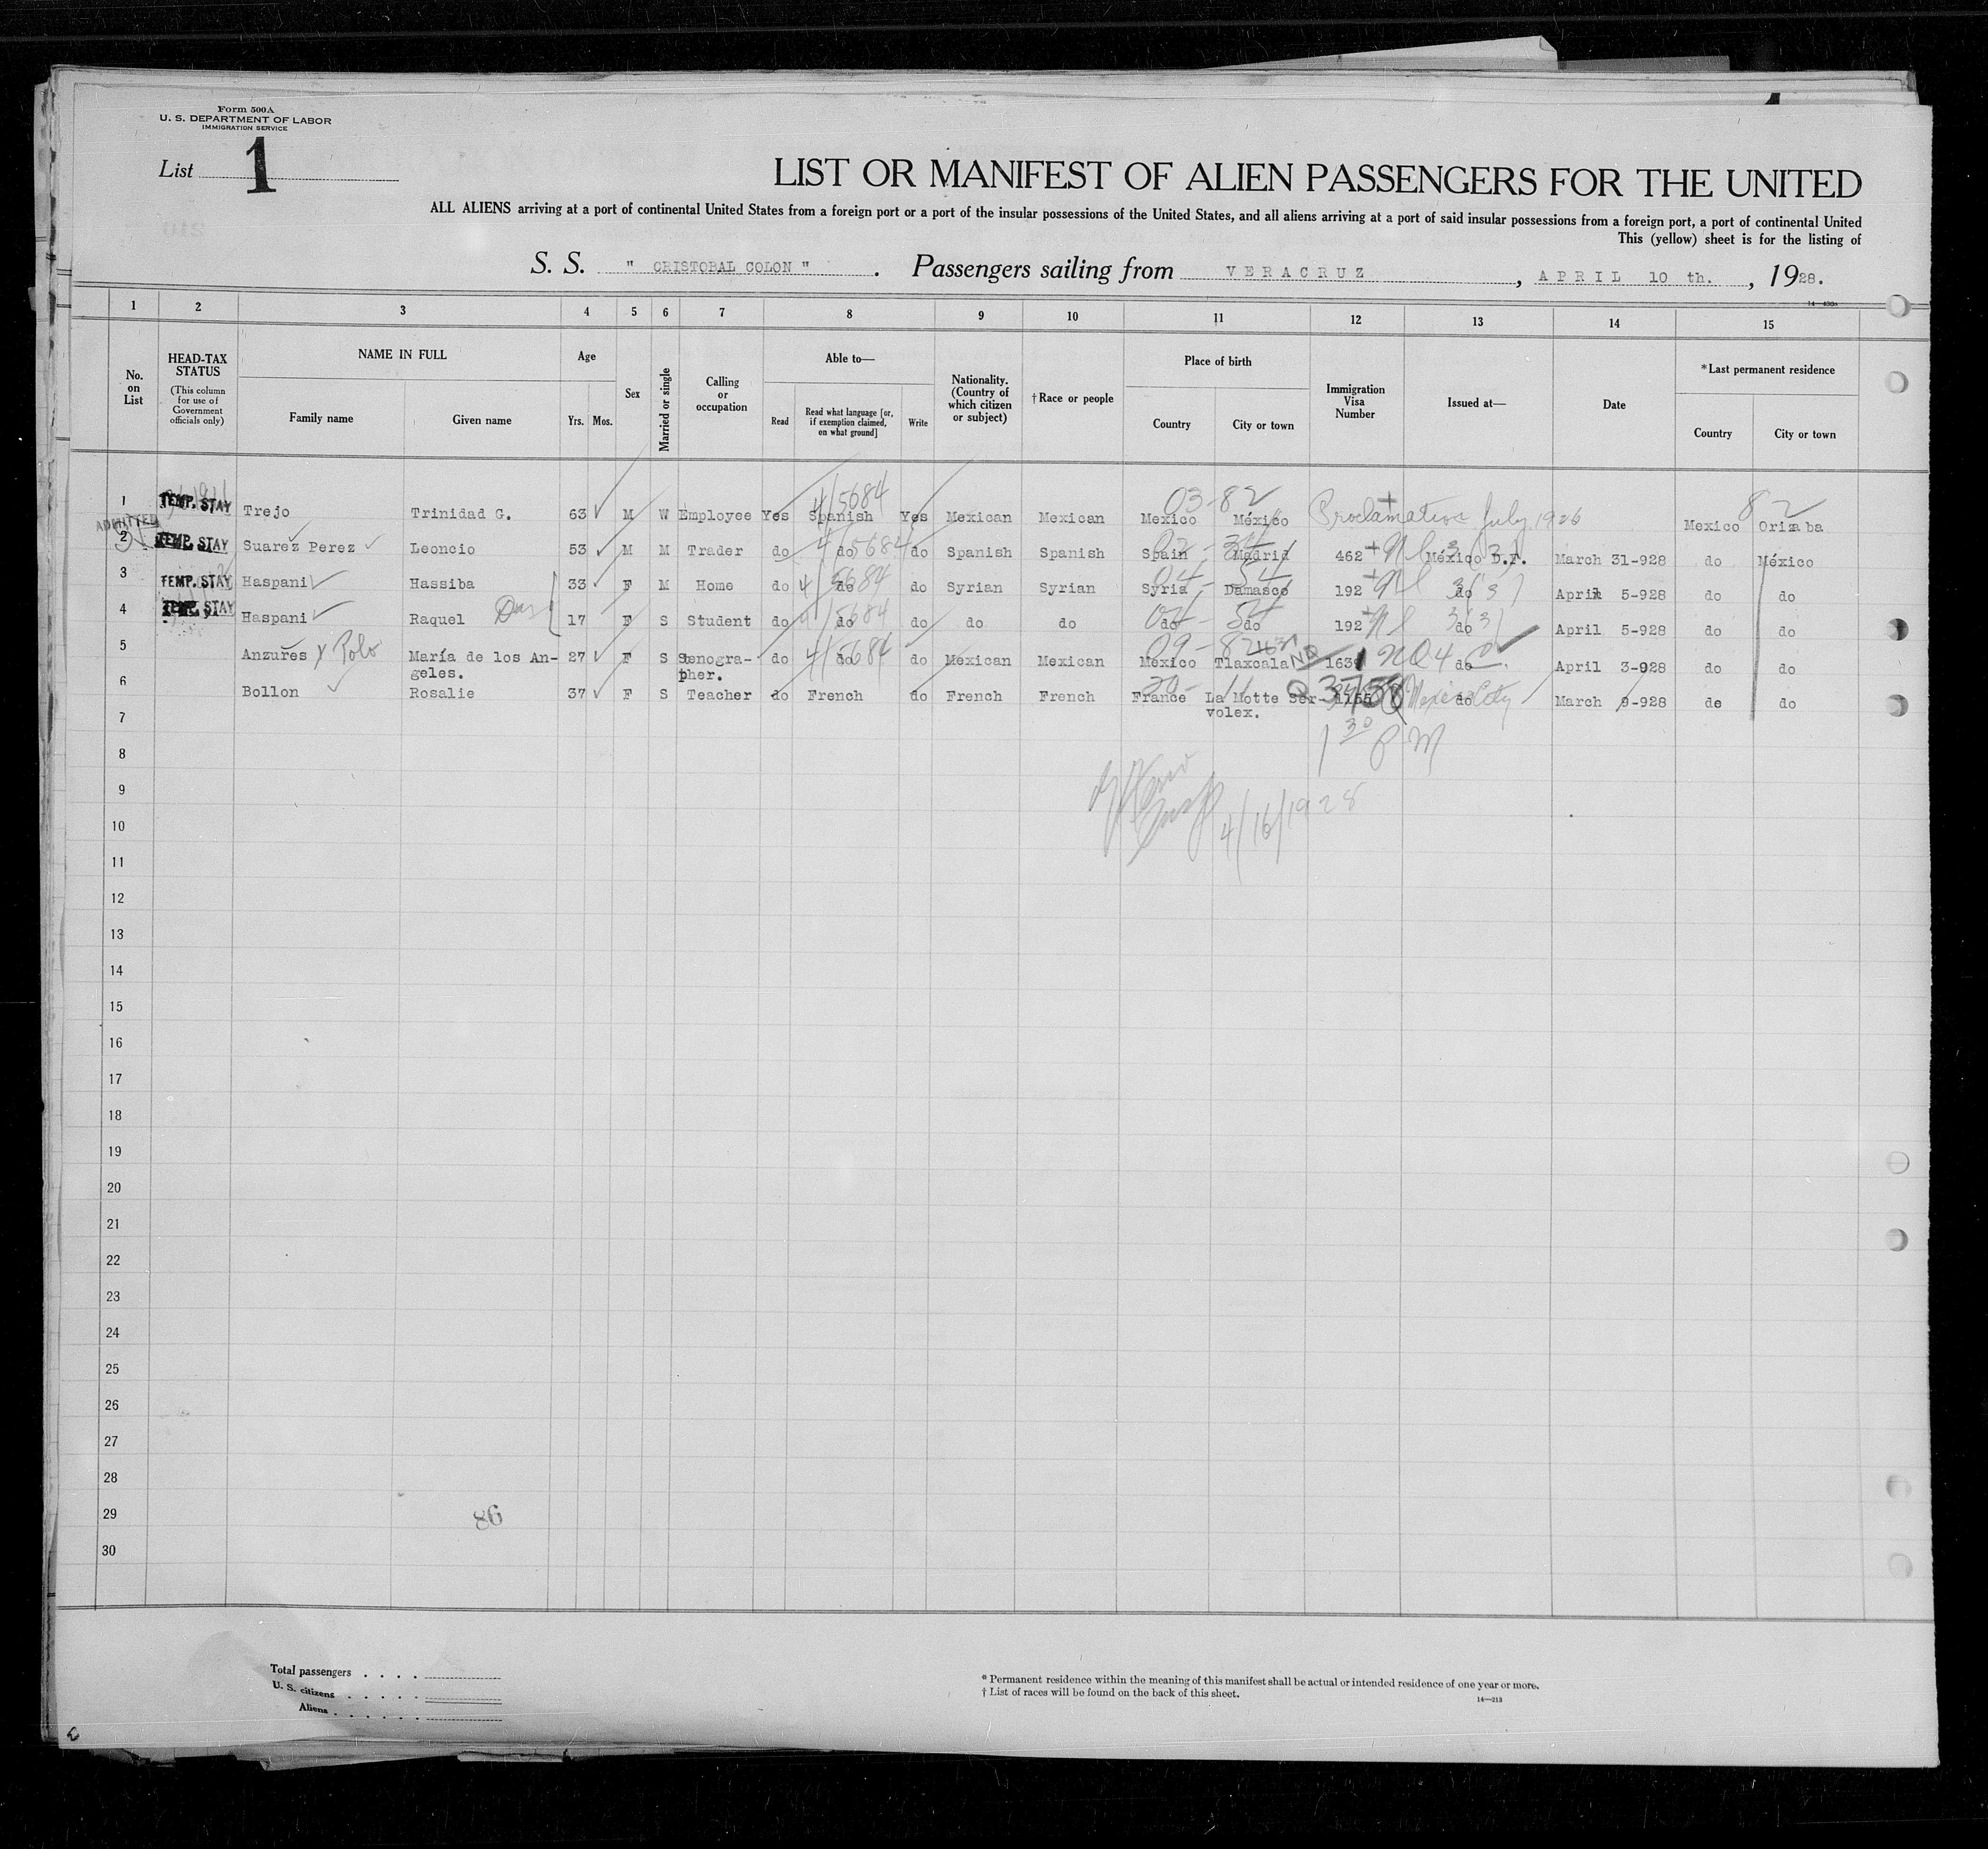 Form 500A
U. S. DEPARTMENT OF LABOR
IMMIGRATION SERVICE
List 1
LIST OR MANIFEST OF ALIEN PASSENGERS FOR THE UNITED
ALL ALIENS arriving at a port of continental United States from a foreign port or a port of the insular possessions of the United States, and all aliens arriving at a port of said insular possessions from a foreign port, a port of continental United
This (yellow) sheet is for the listing of
S. S. " CRISTOBAL COLON ". Passengers sailing from VERACRUZ, APRIL 10 th., 1928.
1 2 3 4 5 6 7 8 9 10 11 12 13 14 15
No. on List
HEAD-TAX STATUS
(This column for use of Government officials only)
NAME IN FULL
Family name Given name
Age
Yrs. Mos.
Sex
Married or single
Calling or occupation
Able to—
Read
Read what language [or, if exemption claimed, on what ground]
Write
Nationality. (Country of which citizen or subject)
† Race or people
Place of birth
Country City or town
Immigration Visa Number
Issued at—
Date
*Last permanent residence
Country City or town
4/5684 03-82 82
1 TEMP. STAY Trejo Trinidad G. 63 M W Employee Yes Spanish Yes Mexican Mexican Mexico México Proclamation July 1926 Mexico Orizaba
ADMITTED
2 TEMP. STAY Suarez Perez Leoncio 53 M M Trader do do do Spanish Spanish Spain Madrid 462 México D.F. March 31-928 do México
3 TEMP. STAY Haspani Hassiba 33 F M Home do do do Syrian Syrian Syria Damasco 192 do April 5-928 do do
4 TEMP. STAY Haspani Raquel Dau 17 F S Student do do do do do do do 192 do April 5-928 do do
5 Anzures y Polo María de los An- 27 F S Stenogra- do do do Mexican Mexican Mexico Tlaxcala 1631 NQ4C do April 3-928 do do
geles. pher.
6 Bollon Rosalie 37 F S Teacher do French do French French France La Motte Ser- Mexico City do March 9-928 do do
volex.
7
1 30 PM
8
9
4/16/1928
10
11
12
13
14
15
16
17
18
19
20
21
22
23
24
25
26
27
28
29
86
30
Total passengers
U. S. citizens
Aliens
* Permanent residence within the meaning of this manifest shall be actual or intended residence of one year or more.
† List of races will be found on the back of this sheet.
14—213